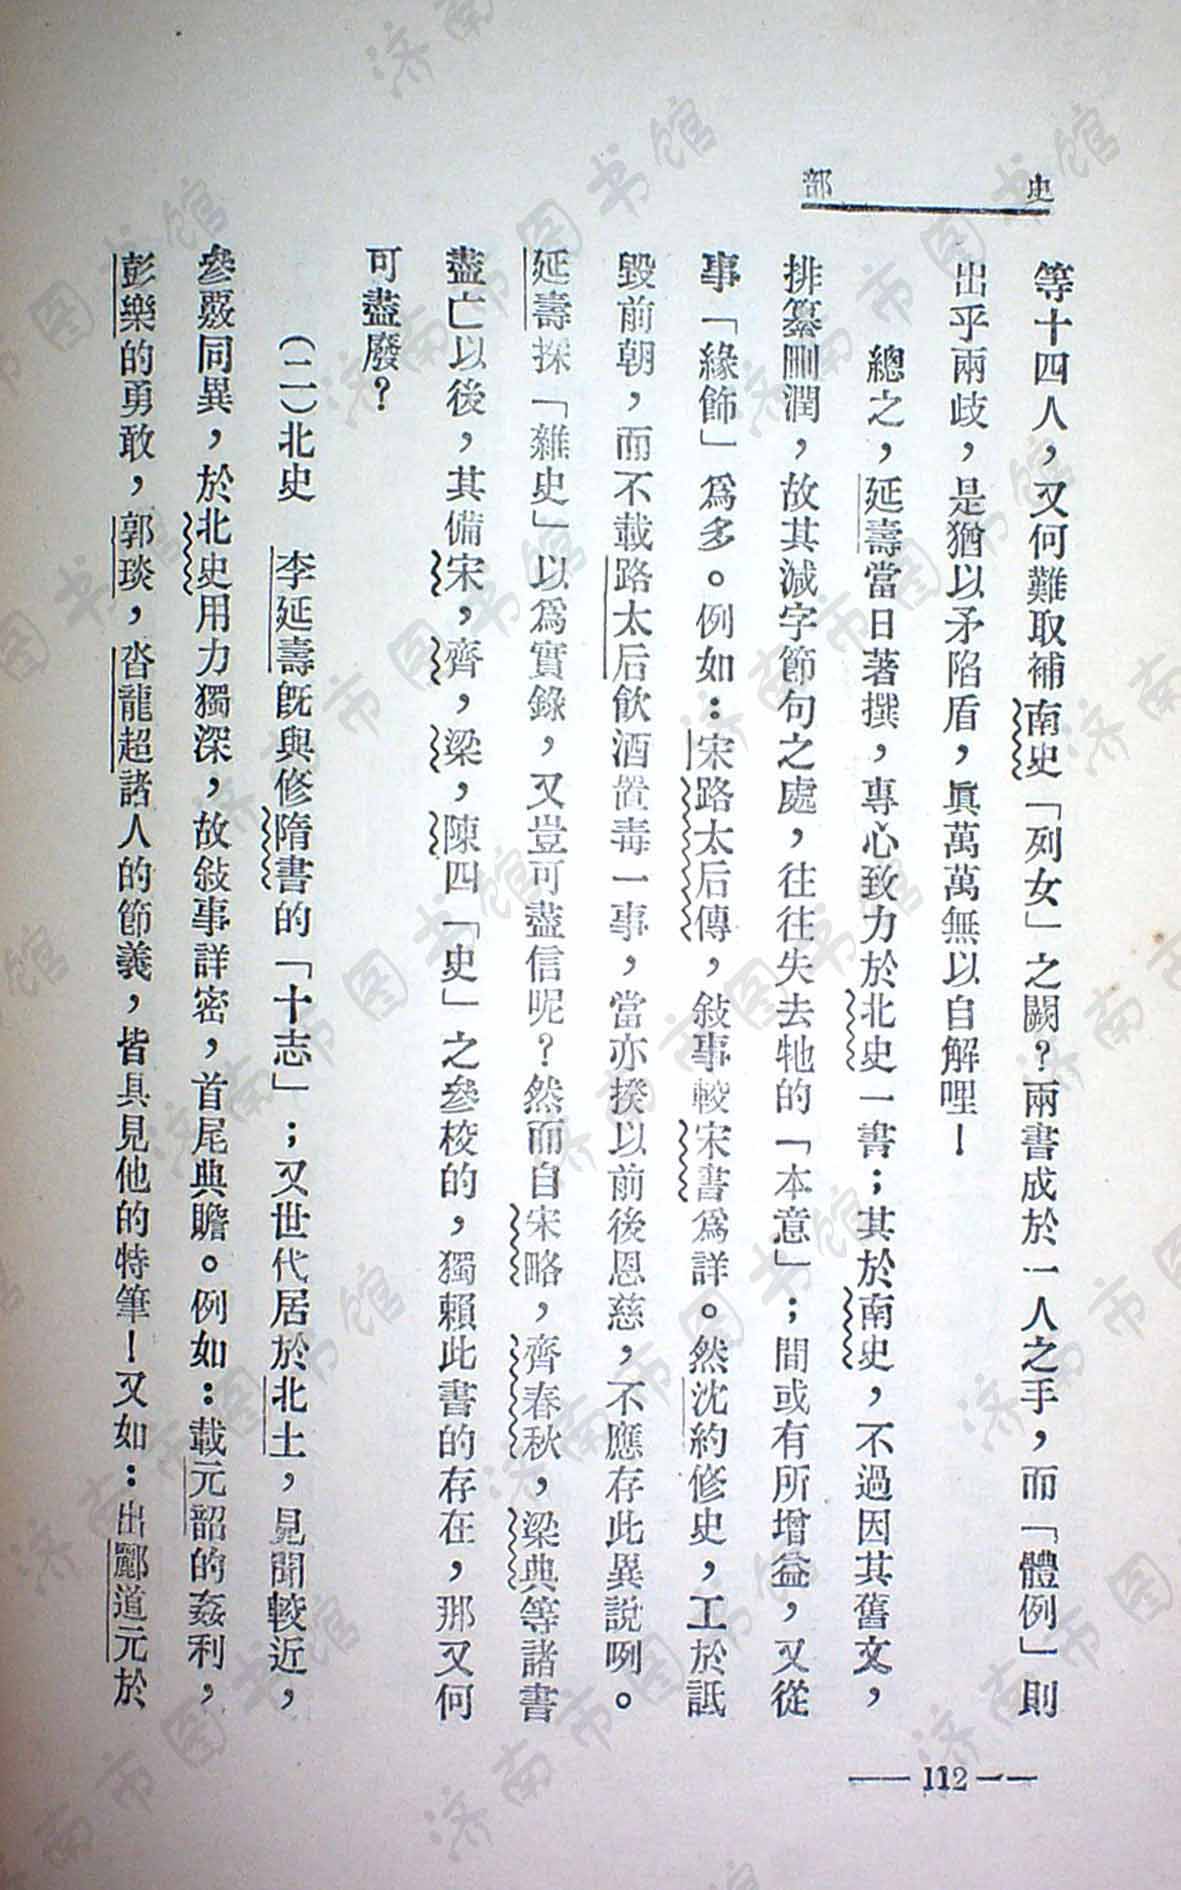 史部
等十四人，又何難取補南史「列女」之闕？兩書成於一人之手，而「體例」則
出乎兩歧，是猶以矛陷盾，眞萬萬無以自解哩！
總之，延壽當日著撰，專心致力於北史一書；其於南史，不過因其舊文，
排纂刪潤，故其減字節句之處，往往失去牠的「本意」；間或有所增益，又從
事「緣飾」爲多。例如：宋路太后傳，敍事較宋書爲詳。然沈約修史，工於詆
毀前朝，而不載路太后飲酒置毒一事，當亦揆以前後恩慈，不應存此異說咧。
延壽採「雜史」以爲實錄，又豈可盡信呢？然而自宋略，齊春秋，梁典等諸書
盡亡以後，其備宋，齊，梁，陳四「史」之參校的，獨賴此書的存在，那又何
可盡廢？
（二）北史　李延壽旣與修隋書的「十志」；又世代居於北土，見聞較近，
參覈同異，於北史用力獨深，故敍事詳密，首尾典贍。例如：載元韶的姦利，
彭樂的勇敢，郭琰，沓龍超諸人的節義，皆具見他的特筆！又如：出酈道元於
—112—
济南市图书馆